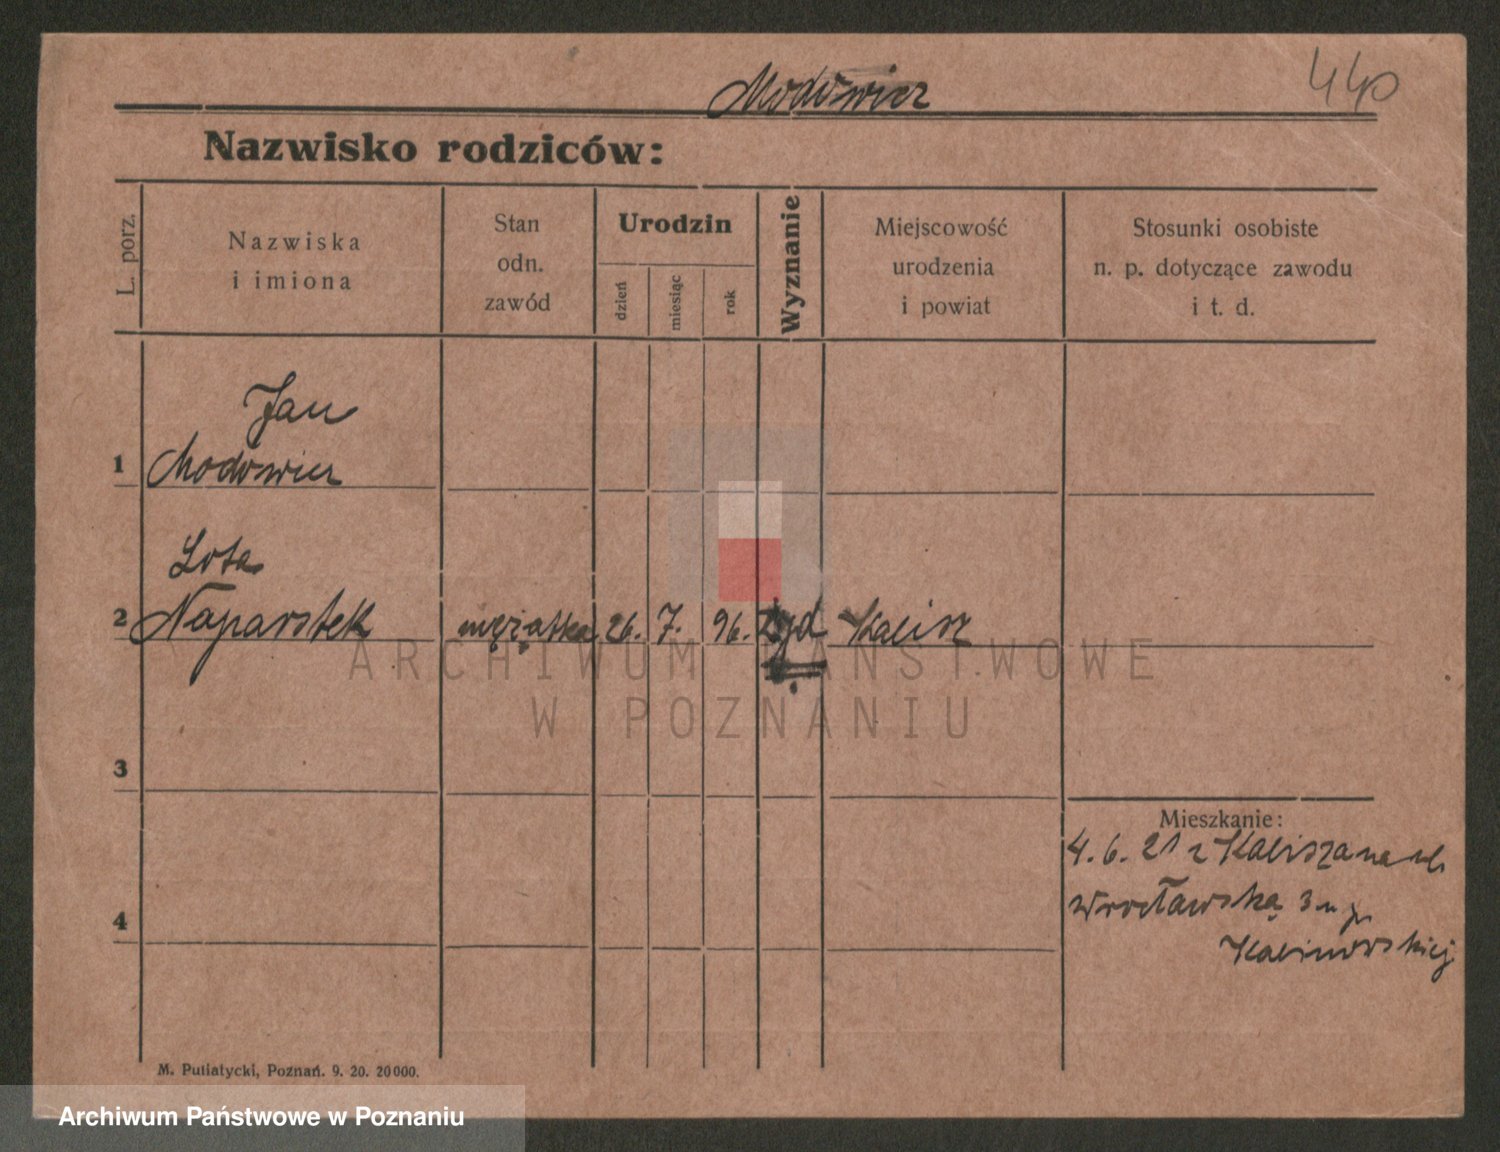 Modowicz
440
Nazwisko rodziców:
L. porz.
Nazwiska
i imiona
Stan
odn.
zawód
Urodzin
dzień
miesiąc
rok
Wyznanie
Miejscowość
urodzenia
i powiat
Stosunki osobiste
n. p. dotyczące zawodu
i t. d.
Jan
1 Modowicz
Lota
2 Naparstek mężatka 26. 7. 96. żyd Kalisz
ARCHIWUM PAŃSTWOWE
W POZNANIU
3
Mieszkanie:
4. 6. 21 z Kalisza na ul.
Wrocławską 3 u p.
4
Kalinowskiej
M. Putiatycki, Poznań. 9. 20. 20000.
Archiwum Państwowe w Poznaniu